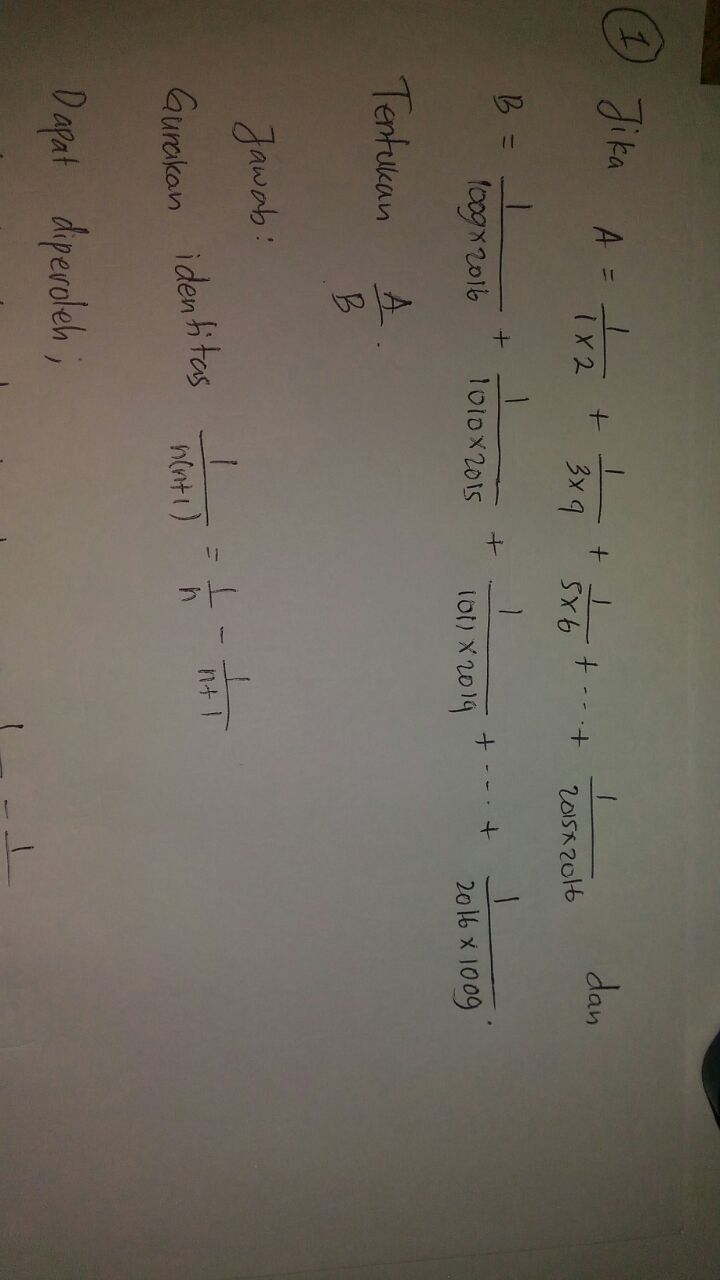 ① Jika A = 1/(1×2) + 1/(3×4) + 1/(5×6) + ... + 1/(2015×2016) dan
B = 1/(1009×2016) + 1/(1010×2015) + 1/(1011×2014) + ... + 1/(2016×1009).
Tentukan A/B.
Jawab:
Gunakan identitas 1/(n(n+1)) = 1/n - 1/(n+1)
Dapat diperoleh;